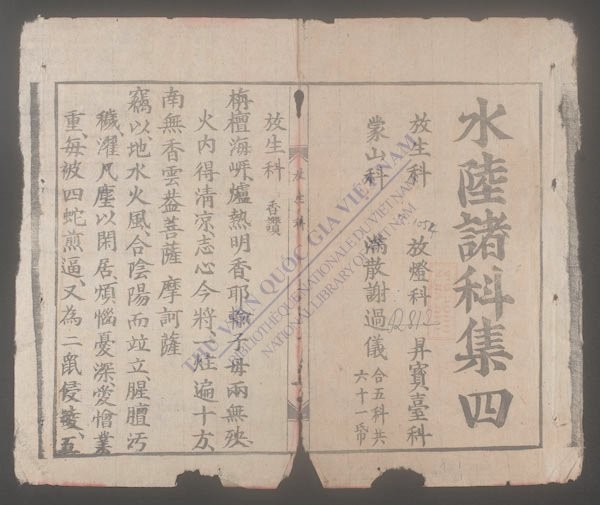 水陸諸科集四
放生科　放燈科　昇寶臺科
蒙山科　滿散謝過儀 合五科共六十一帋
放生科
放生科　香讚
栴檀海岍爐熱明香耶輸子母兩無殃
火内得清凉志心今將一炷遍十方
南無香雲葢菩薩　摩訶薩
竊以地水火風合陰陽而竝立腥膻汚
穢濯凡塵以閑居煩惱憂深愛憎業
重每被四蛇煎逼又為二鼠侵𣣋五
THƯ VIỆN QUỐC GIA VIỆT NAM
BIBLIOTHÈQUE NATIONALE DU VIETNAM
NATIONAL LIBRARY OF VIETNAM